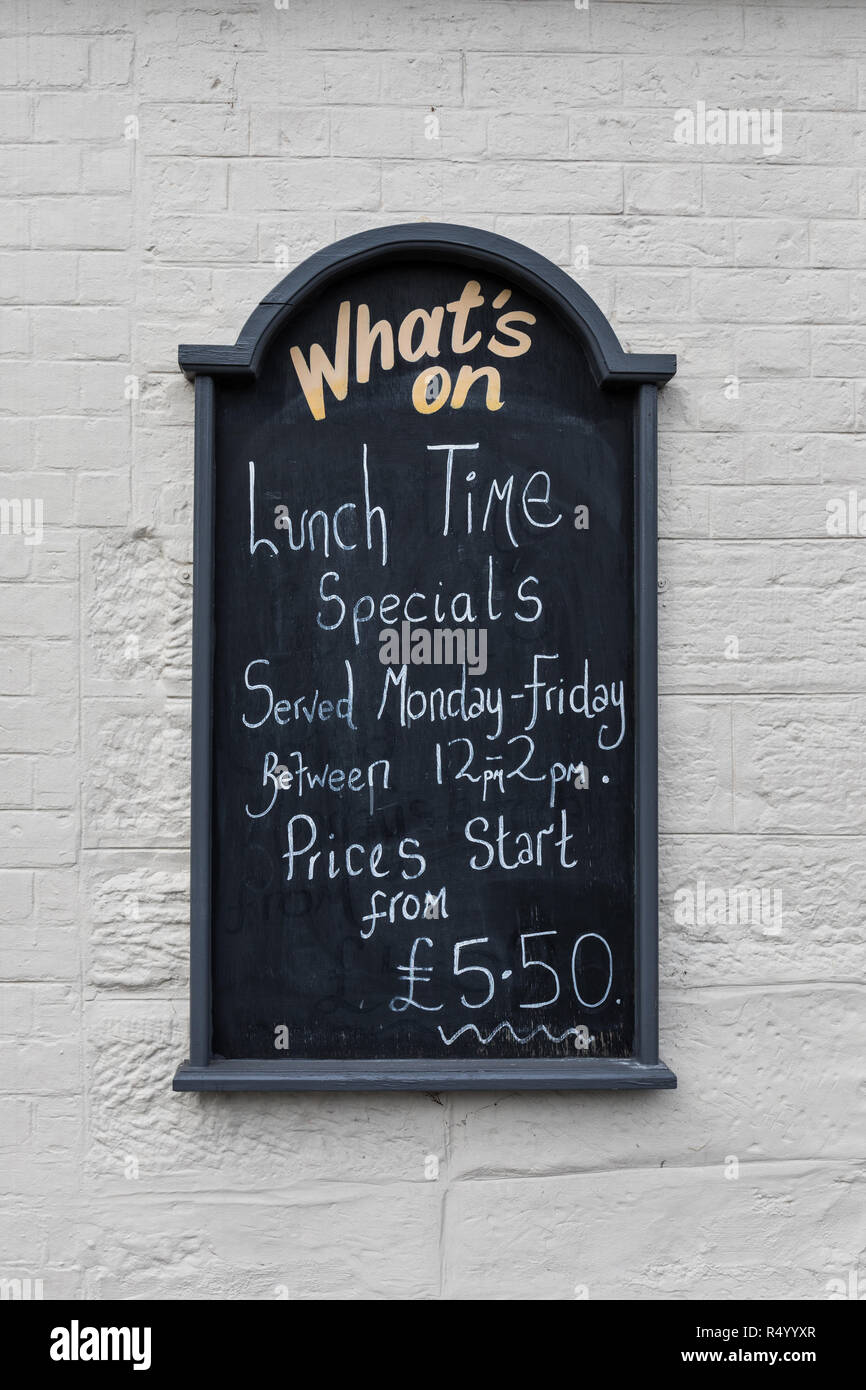 What's
on
Lunch Time
Specials
Served Monday-Friday
Between 12pm-2pm.
Prices Start
from
£5.50.
a
alamy
Image ID: R4YYXR
www.alamy.com